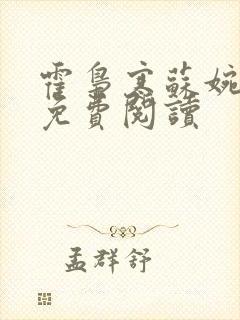 霍梟寒蘇婉
免費閱讀
孟群舒